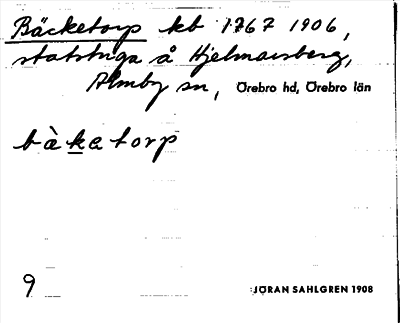 Bäcketorp kb 1767 1906,
statstuga å Hjelmarsberg,
Almby sn, Örebro hd, Örebro län
bàkatorp
9
JÖRAN SAHLGREN 1908